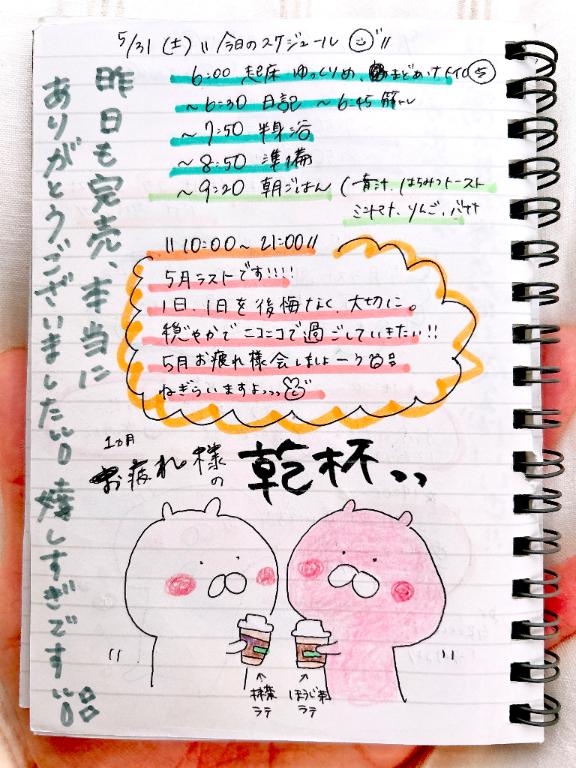 5/31 (土) 〃今日のスケジュール〃
6:00 起床 ゆっくりめ、まどあけ トイレ
~6:30 日記 ~6:45 筋トレ
~7:50 半身浴
~8:50 準備
~9:20 朝ごはん (青汁、はちみつトースト
ミニトマト、りんご、バナナ
〃10:00~21:00〃
5月ラストです!!!!
1日、1日を後悔なく、大切に。
穏やかでニコニコで過ごしていきたい!!
5月お疲れ様会しましょーう
ねぎらいますよっっっ
1ヵ月
お疲れ様の
乾杯っっ
↑
抹茶
ラテ
↑
ほうじ茶
ラテ
昨日も完売、本当に
ありがとうございました!! 嬉しすぎです!!